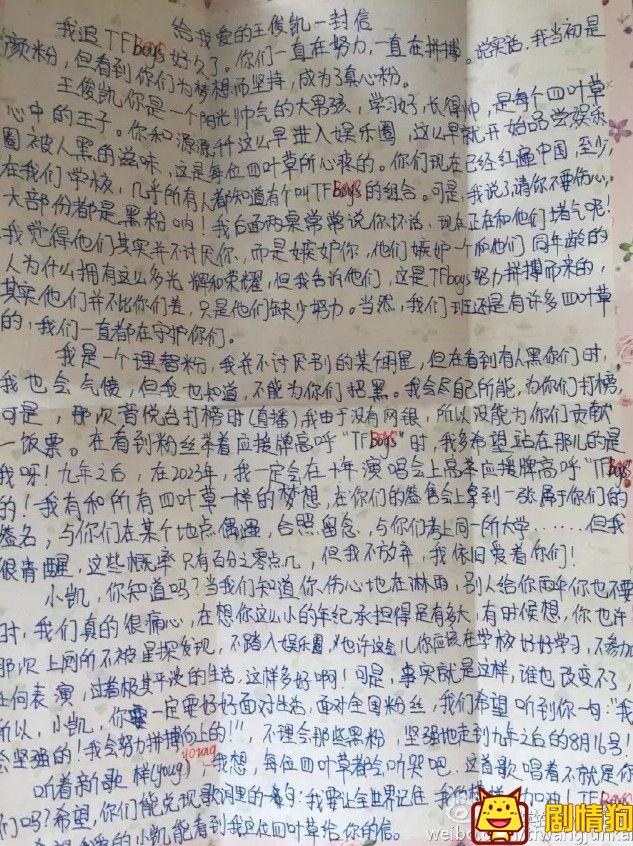 给我爱的王俊凯一封信
我追TFBoys好久了。你们一直在努力,一直在拼搏。说实话,我当初是
颜粉,但看到你们为梦想而坚持,成为了真心粉。
王俊凯,你是一个阳光帅气的大男孩,学习好,长得帅,是每个四叶草
心中的王子。你和源源千这么早进入娱乐圈,这么早就开始品尝娱乐
圈被人黑的滋味,这是每位四叶草所心疼的。你们现在已经红遍中国,至少,
在我们学校,几乎所有人都知道有个叫TFBoys的组合。可是,我说了请你不要伤心,
大部份都是黑粉呐!我后面两桌常常说你坏话,现在正在和他们堵气呢!
我觉得他们其实并不讨厌你,而是嫉妒你,他们嫉妒一个和他们同年龄的
人为什么拥有这么多光辉和荣耀,但我告诉他们,这是TFboys努力拼搏而来的,
其实他们并不比你们差,只是他们缺少努力。当然,我们班还是有许多四叶草
的,我们一直都在守护你们。
我是一个理智粉,我并不讨厌别的某个明星,但在看到有人黑你们时,
我也会气愤,但我也知道,不能为你们招黑。我会尽自己所能,为你们打榜,
可是,那次音悦台打榜时(直播),我由于没有网银,所以没能为你们贡献
一饭票。在看到粉丝举着应援牌高呼“TFBoys”时,我多希望站在那儿的是
我呀!九年之后,在2023年,我一定会在十年演唱会上高举应援牌高呼“TFBoys
的!我有和所有四叶草一样的梦想,在你们的签售会上拿到一张属于你们的
签名,与你们在某个地点偶遇,合照留念,与你们考上同一所大学……但我
很清醒,这些概率只有百分之零点几,但我不放弃,我依旧爱着你们!
小凯,你知道吗?当我们知道你伤心地在淋雨,别人给你雨伞你也不要
时,我们真的很痛心,在想你这么小的年纪承担得是有多大,有时候想,你也许
那次上厕所不被星探发现,不踏入娱乐圈,也许这会儿你应该在学校好好学习,不参加
任何表演,过着极其平淡的生活,这样多好啊!可是,事实就是这样,谁也改变不了
所以,小凯,你一定要好好面对生活,面对全国粉丝,我们希望听到你一句:“我
会坚强的!我会努力拼搏向上的!”,不理会那些黑粉,坚强地走到九年之后的8月16号!
听着新歌样(young),我想,每位四叶草都会听哭吧,这首歌唱着不就是你
young
们吗?希望,你们能兑现歌词里的一句:我要让全世界记住我的模样,加油!TFBoys
希望我爱的小凯能看到我这位四叶草给你的信。
剧情狗
weibo.com/tiwangjunkai